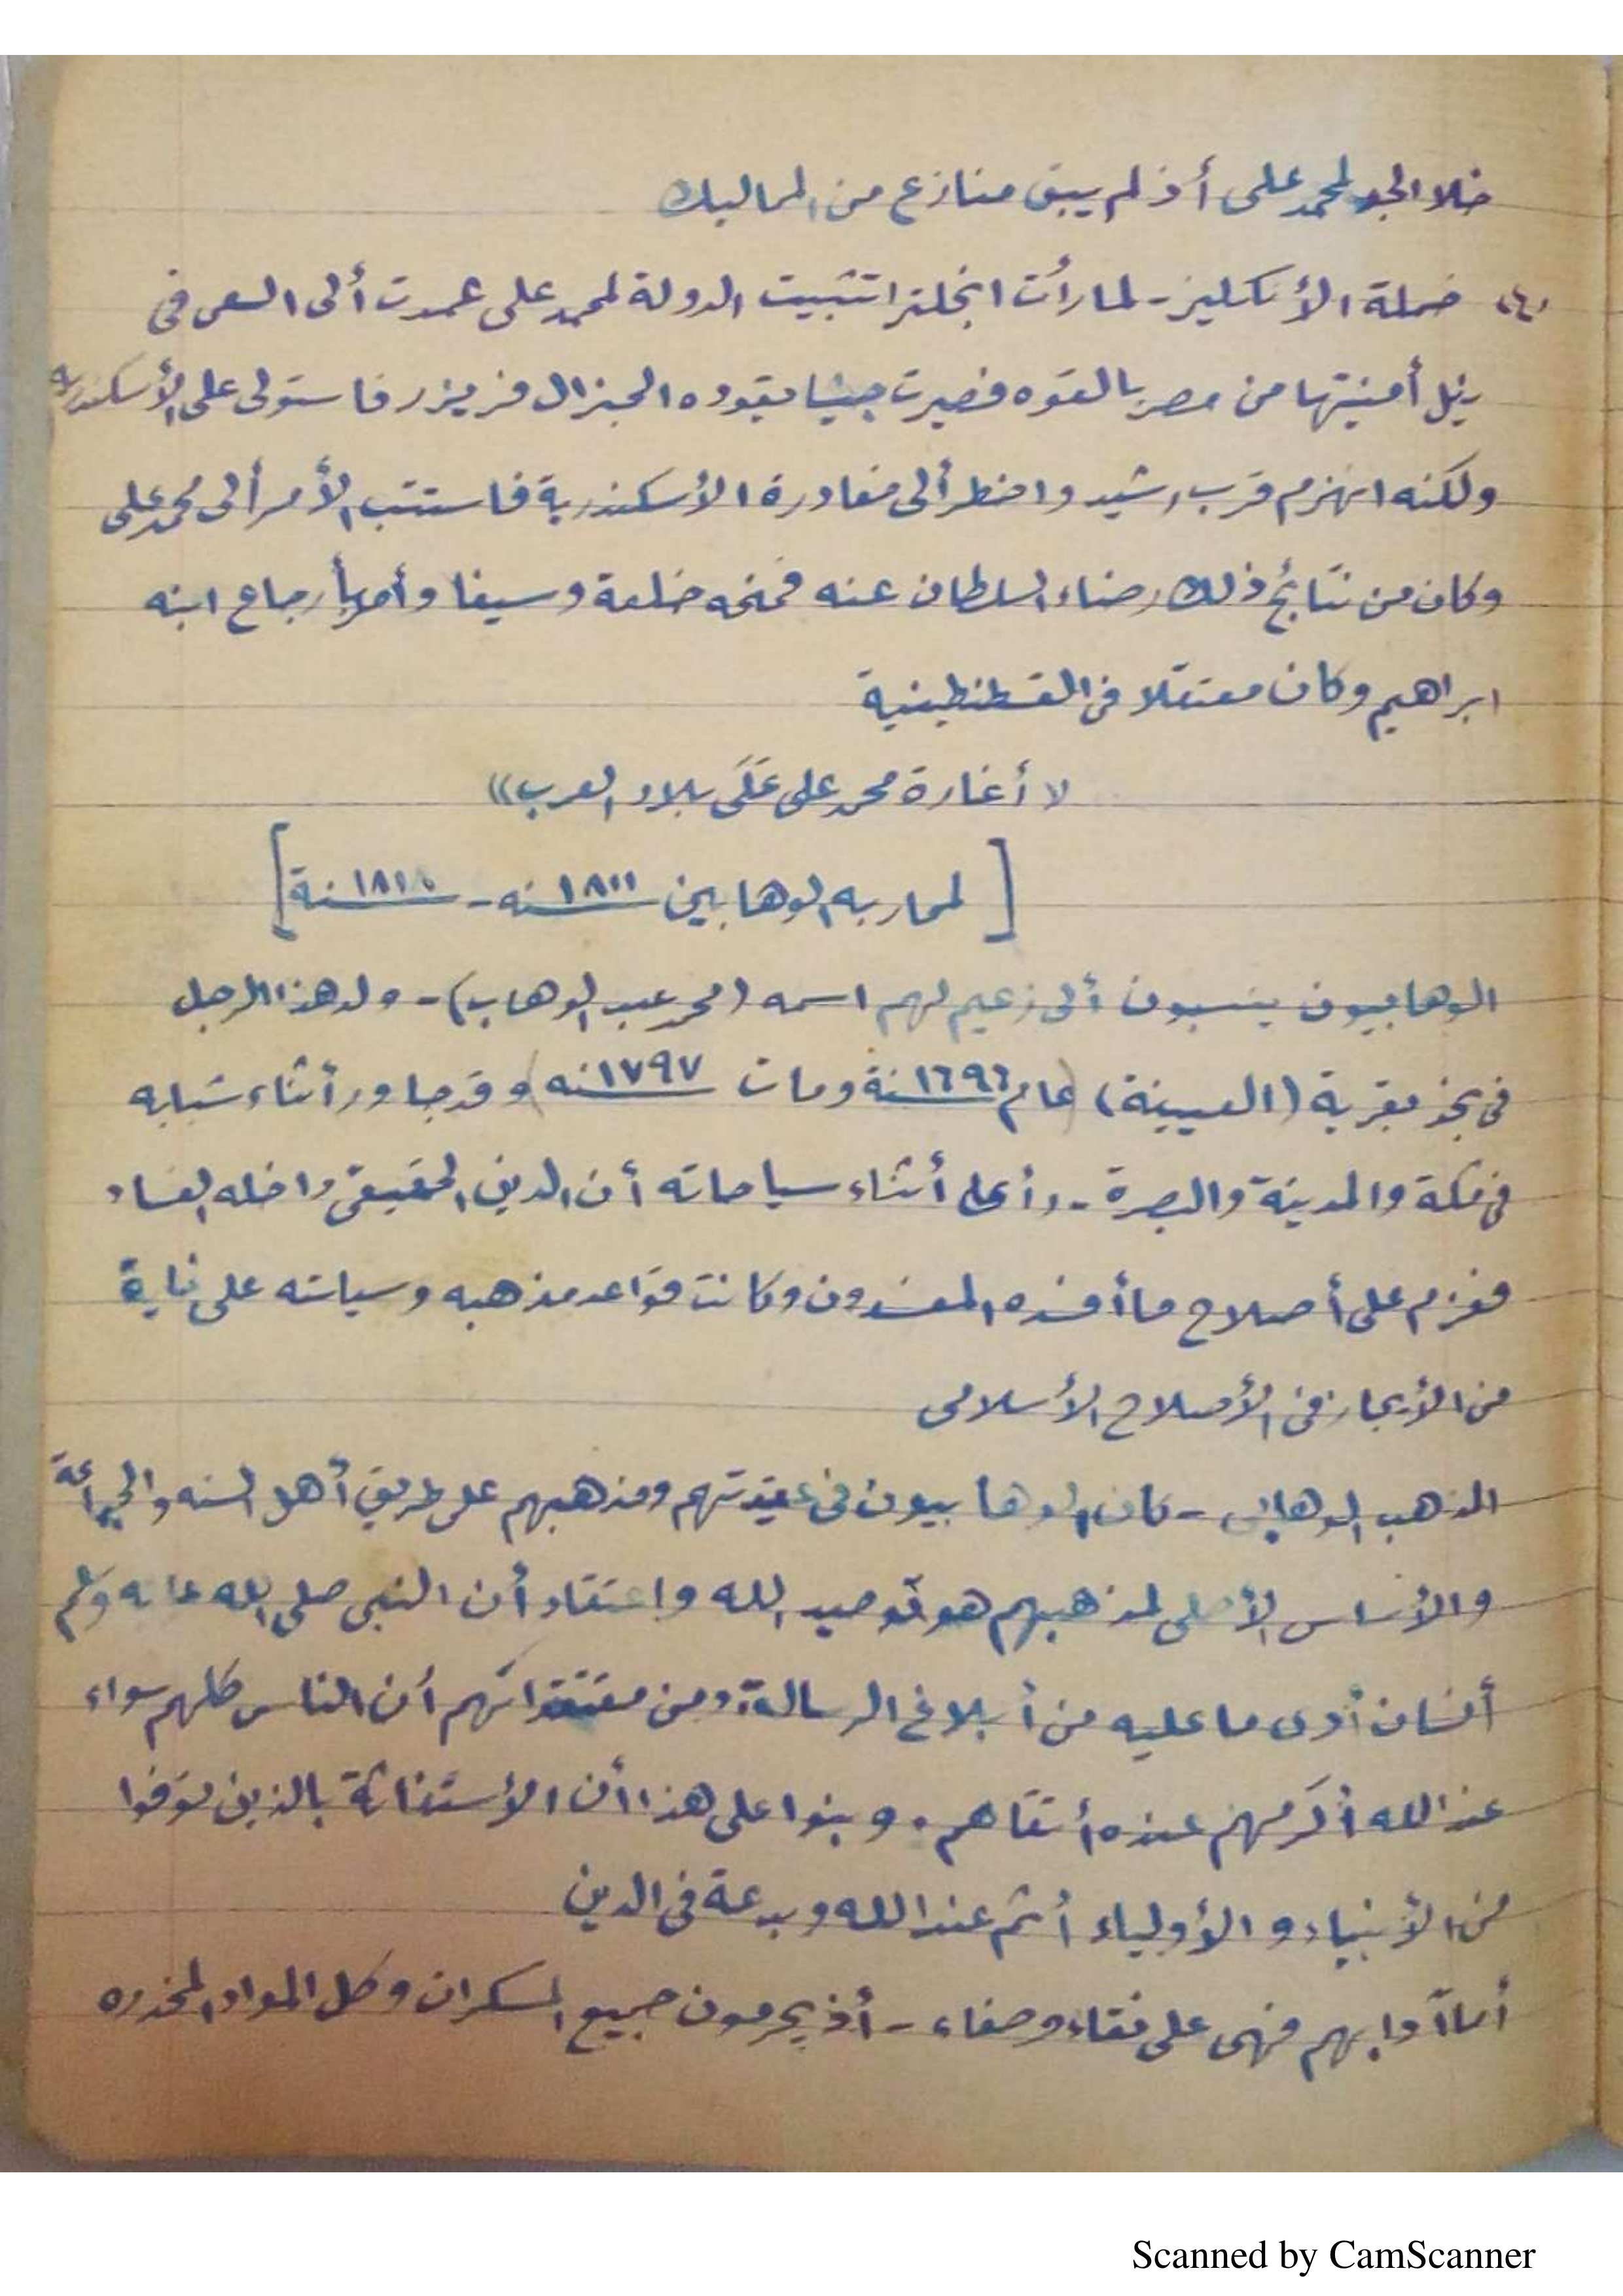 خلا الجو لمحمد على أذ لم يبق منازع من المماليك
(٤) حملة الأنكليز - لما رأت انجلترا تثبيت الدولة لمحمد على عمدت ألى السعى فى
نيل أمنيتها من مصر بالقوه فصيرت جيشا يقوده الجنرال فريزر فاستولى على الأسكندريه
ولكنه انهزم قرب رشيد واضطر ألى مغادرة الأسكندرية فاستتب الأمر ألى محمد على
وكان من نتائج ذلك رضاء السلطان عنه فمنحه خلعة وسيفا وأمر بأرجاع ابنه
ابراهيم وكان معتقلا فى القسطنطينية
«أغارة محمد على عَلَى بلاد العرب»
[لمحاربه الوهابين ١٨١١سنه - سنة]
الوهابيون ينسبون ألى زعيم لهم اسمه (محمد عبد الوهاب) - ولد هذا الرجل
فى نجد بقرية (العيينة) (عام ١٦٩٦سنة ومات ١٧٩٧سنه) وقد جاور أثناء شبابه
فى مكة والمدينة والبصرة - رأى أثناء سياحاته أن الدين الحقيقى داخله الفساد
فعزم على أصلاح ما أفسده المفسدون وكانت قواعد مذهبه وسياسته على غاية
من الأيجاز فى الأصلاح الأسلامى
المذهب الوهابى - كان الوهابيون فى عقيدتهم ومذهبهم على طريق أهل السنه والجماعة
والأساس الأصلى لمذهبهم هو توحيد الله واعتقاد أن النبى صلى الله عليه وسلم
أنسان أدى ما عليه من أبلاغ الرسالة ومن معتقداتهم أن الناس كلهم سواء
عند الله أكرمهم عنده أتقاهم. وبنوا على هذا أن الأستغاثة بالذين توفوا
من الأنبياء و الأولياء أثم عند الله وبدعة فى الدين
أما آدابهم فهى على نقاء وصفاء - أذ يحرمون جميع المسكرات وكل المواد المخدره
Scanned by CamScanner